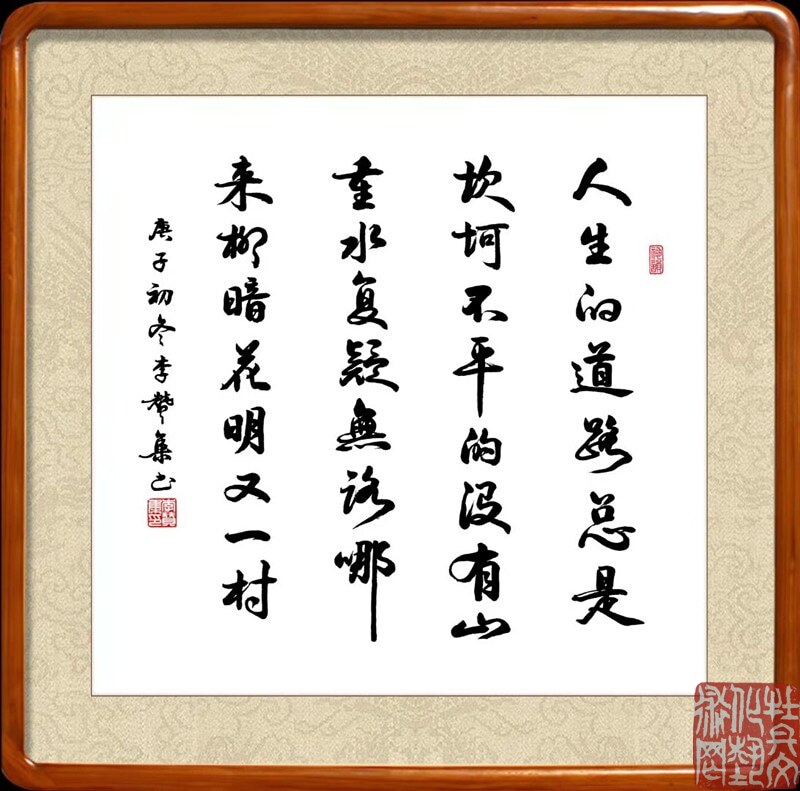 人生的道路总是
坎坷不平的没有山
重水复疑無路哪
来柳暗花明又一村
庚子初冬李赞集书